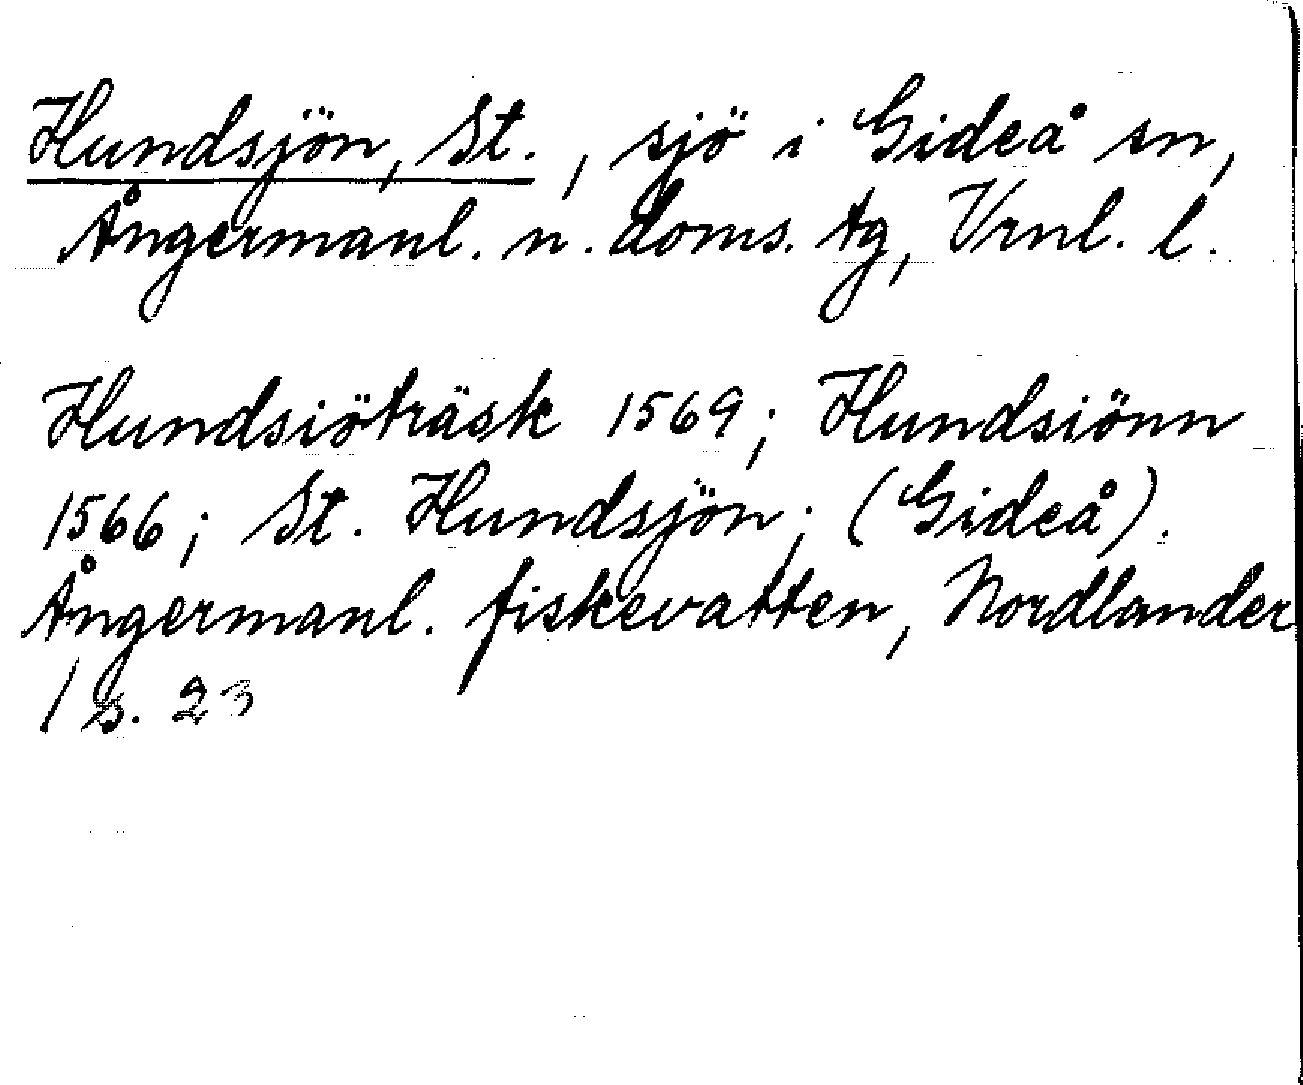 Hundsjön, St., sjö i Gideå sn,
Ångermanl. n. doms. tg, Vrnl. l.
Hundsiöträsk 1569; Hundsiönn
1566; St. Hundsjön; (Gideå).
Ångermanl. fiskevatten, Nordlander
/ s. 23